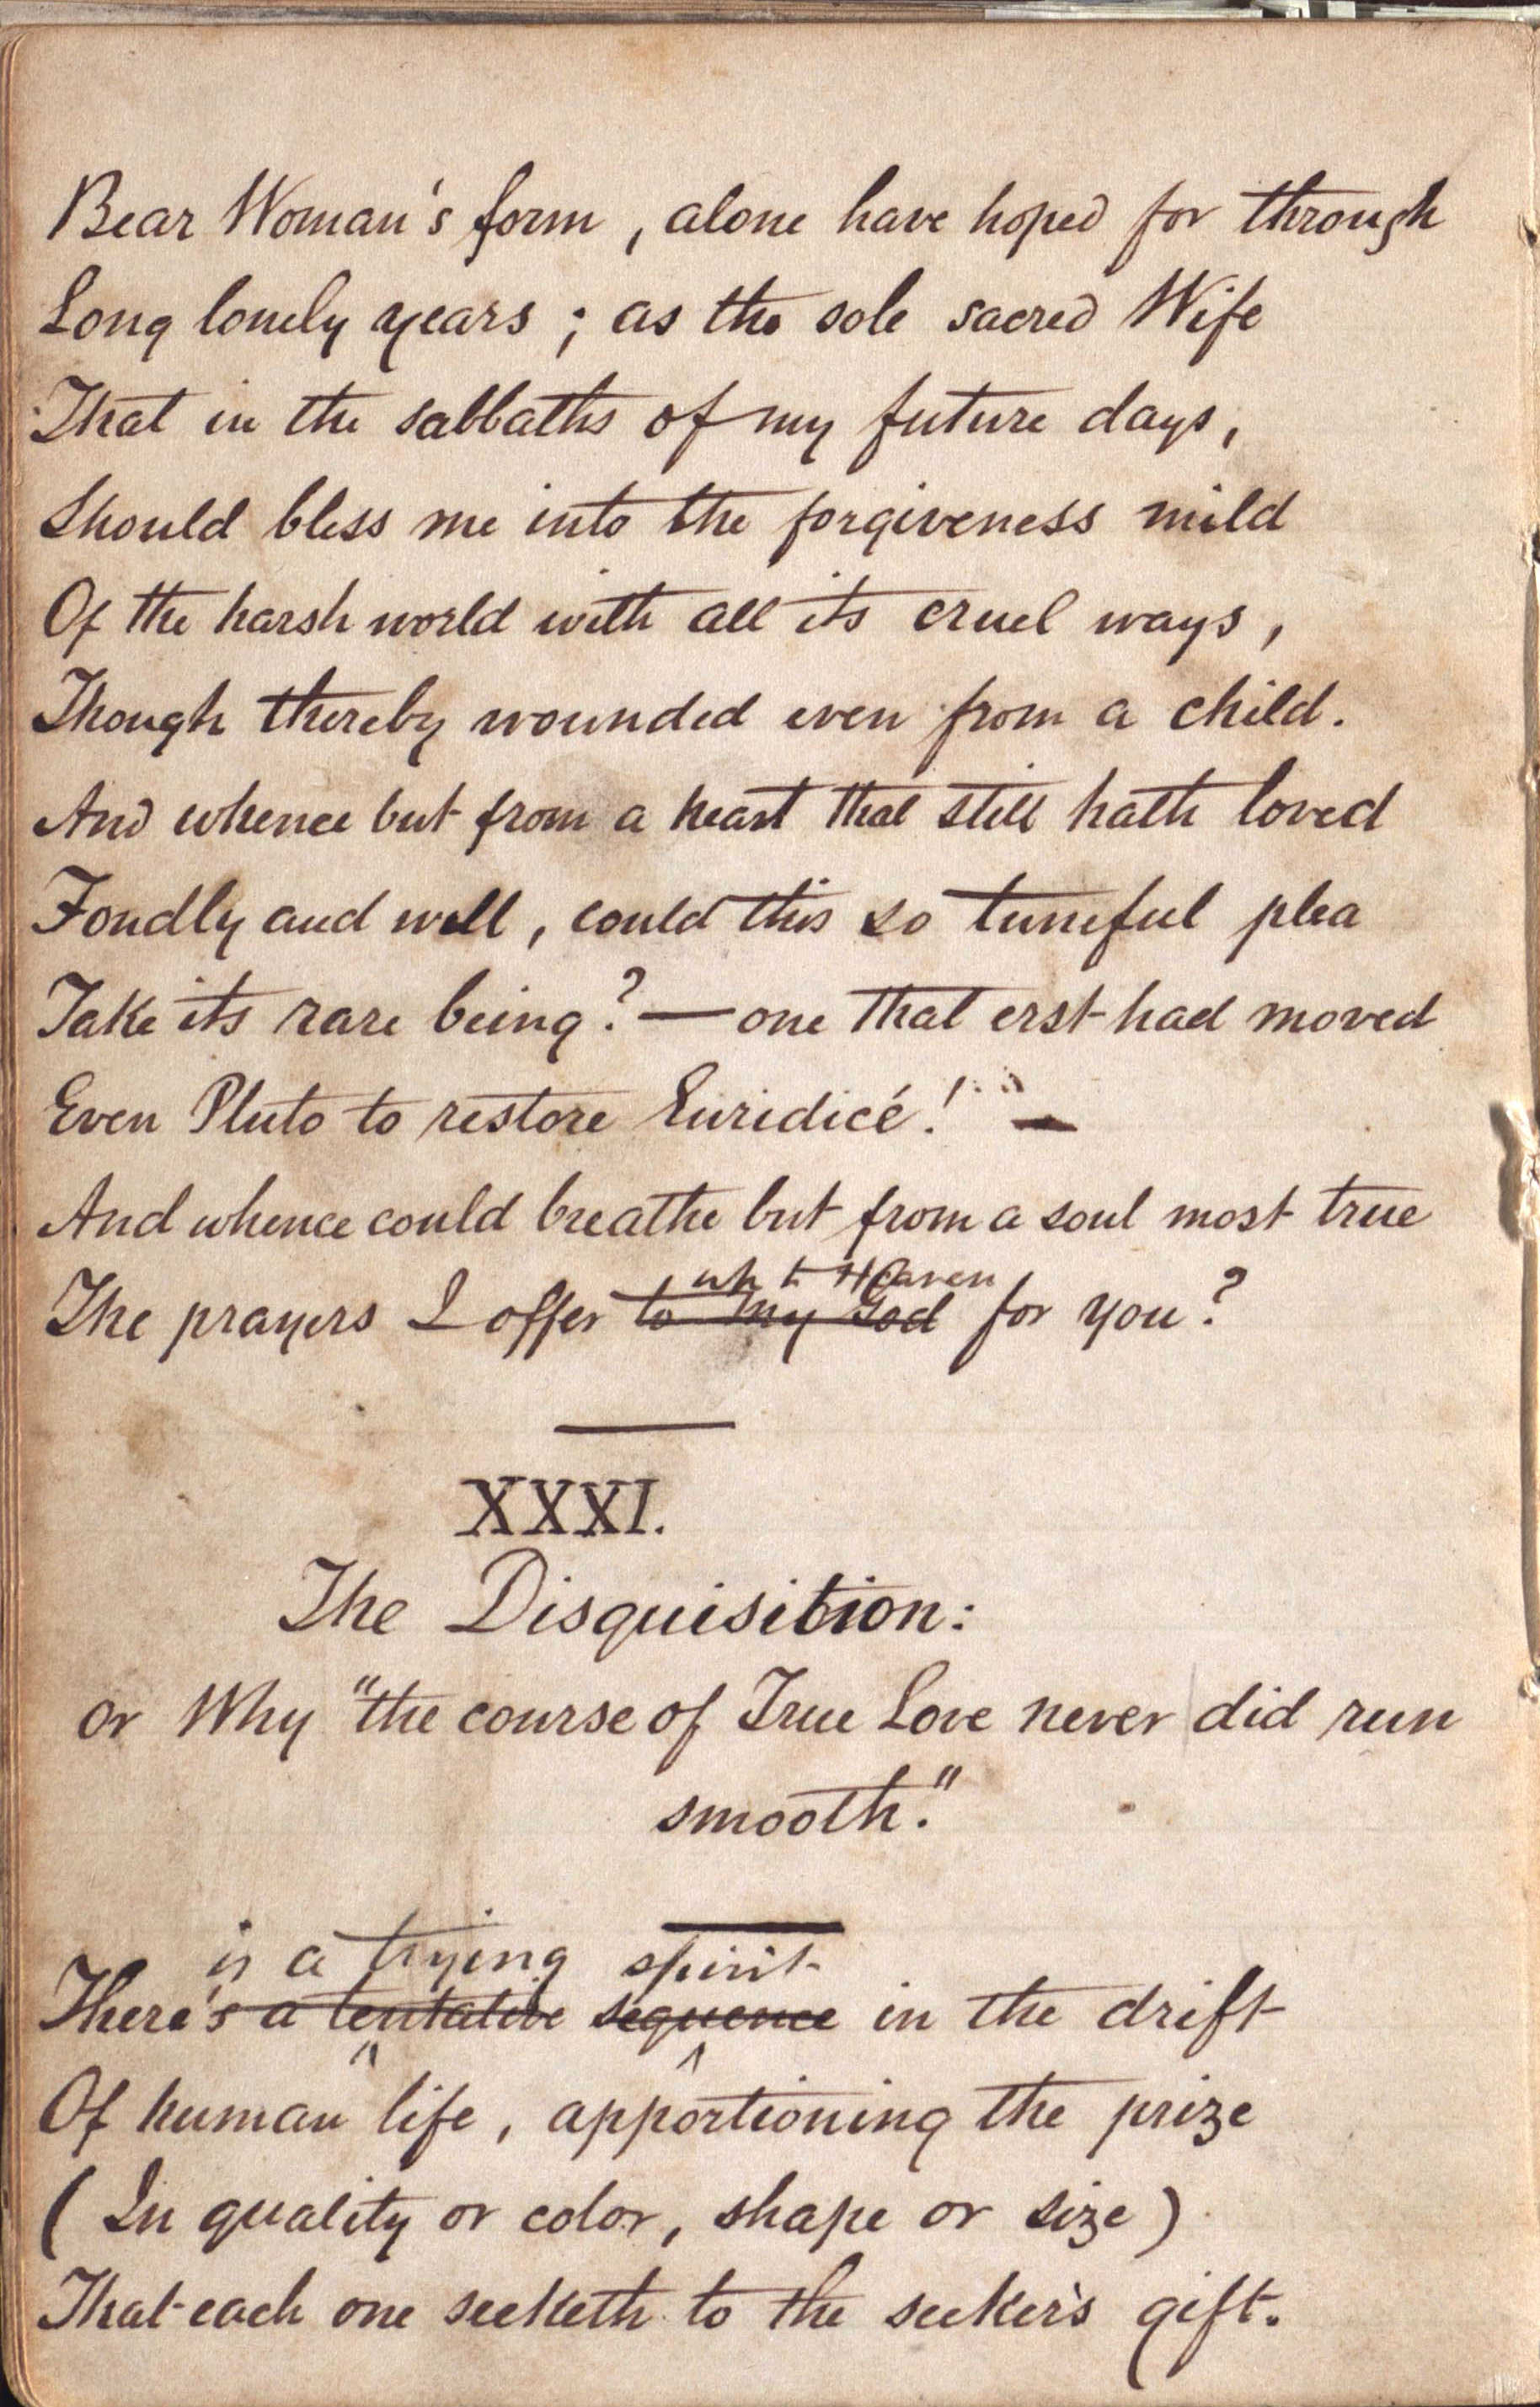 Bear Woman's form, alone have hoped for through
Long lonely years; as the sole sacred Wife
That in the sabbaths of my future days,
Should bless me into the forgiveness mild
Of the harsh world with all its cruel ways,
Though thereby wounded even from a child.
And whence but from a heart that still hath loved
Fondly and well, could this so tuneful plea
Take its rare being? — one that erst had moved
Even Pluto to restore Euridicé! —
And whence could breathe but from a soul most true
Heaven
The prayers I offer to my God for you?
XXXI.
The Disquisition:
or Why "the course of True Love never did run
smooth."
is a trying spirit
There's a tentative sequence in the drift
Of human life, apportioning the prize
(In quality or color, shape or size)
That each one seeketh to the seeker's gift.